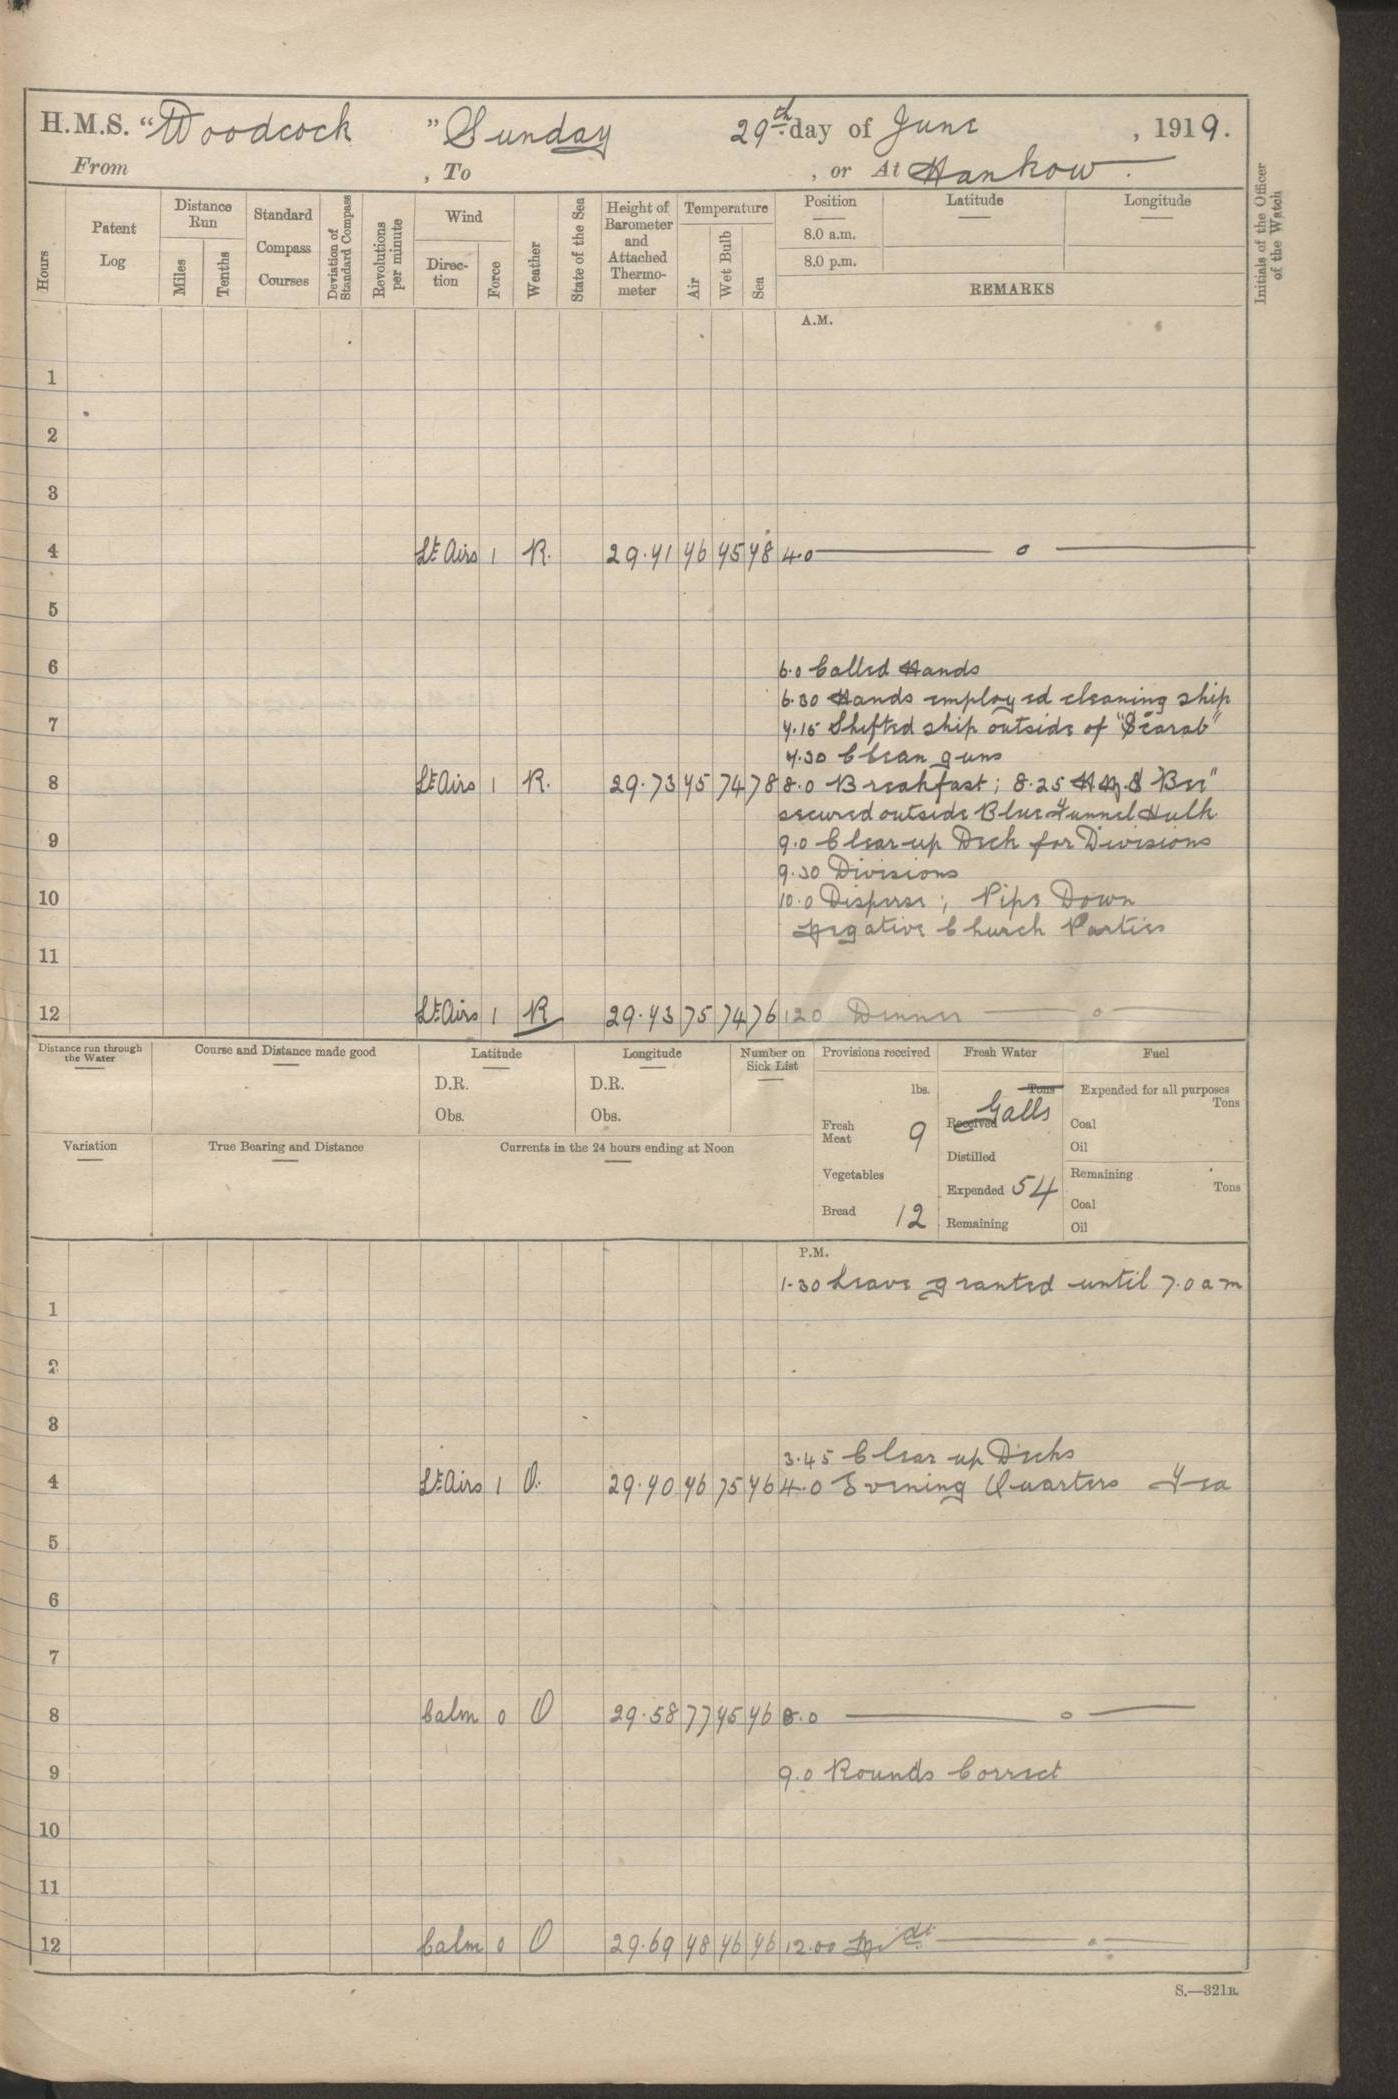 H.M.S. "Woodcock" Sunday 29th day of June, 1919.
From , To , or At Hankow.
Hours
Patent Log
Distance Run
Miles
Tenths
Standard Compass Courses
Deviation of Standard Compass
Revolutions per minute
Wind
Direction
Force
Weather
State of the Sea
Height of Barometer and Attached Thermometer
Temperature
Air
Wet Bulb
Sea
Position
8.0 a.m.
8.0 p.m.
Latitude
Longitude
REMARKS
Initials of the Officer of the Watch
A.M.
1
2
3
4 Lt Airs 1 R. 29.71 76 75 78 4.0 — o —
5
6 6.0 Called Hands
6.30 Hands employed cleaning ship
7 7.15 Shifted ship outside of "Scarab"
7.30 Clean guns
8 Lt Airs 1 R. 29.73 75 74 78 8.0 Breakfast; 8.25 H.M.S "Bee"
secured outside Blue Funnel Hulk
9 9.0 Clear up Deck for Divisions
9.30 Divisions
10 10.0 Disperse; Pipe Down
Negative Church Parties
11
12 Lt Airs 1 R 29.73 75 74 76 12 0 Dinner — o —
Distance run through the Water
Course and Distance made good
Latitude
D.R.
Obs.
Longitude
D.R.
Obs.
Number on Sick List
Provisions received
lbs.
Fresh Meat 9
Vegetables
Bread 12
Fresh Water
Tons
Galls
Received
Distilled
Expended 54
Remaining
Fuel
Expended for all purposes
Tons
Coal
Oil
Remaining
Tons
Coal
Oil
Variation
True Bearing and Distance
Currents in the 24 hours ending at Noon
P.M.
1.30 Leave granted until 7.0 a m
1
2
3
3.45 Clear up Decks
4 Lt Airs 1 O. 29.70 76 75 76 4.0 Evening Quarters Tea
5
6
7
8 Calm 0 O 29.58 77 75 76 8.0 — o —
9 9.0 Rounds Correct
10
11
12 Calm 0 O 29.69 78 76 76 12.00 Mid — o —
S.—321B.